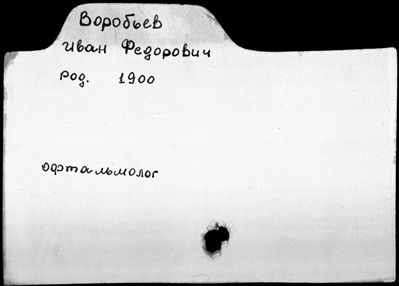 Воробьев
Иван Федорович
род. 1900
офтальмолог